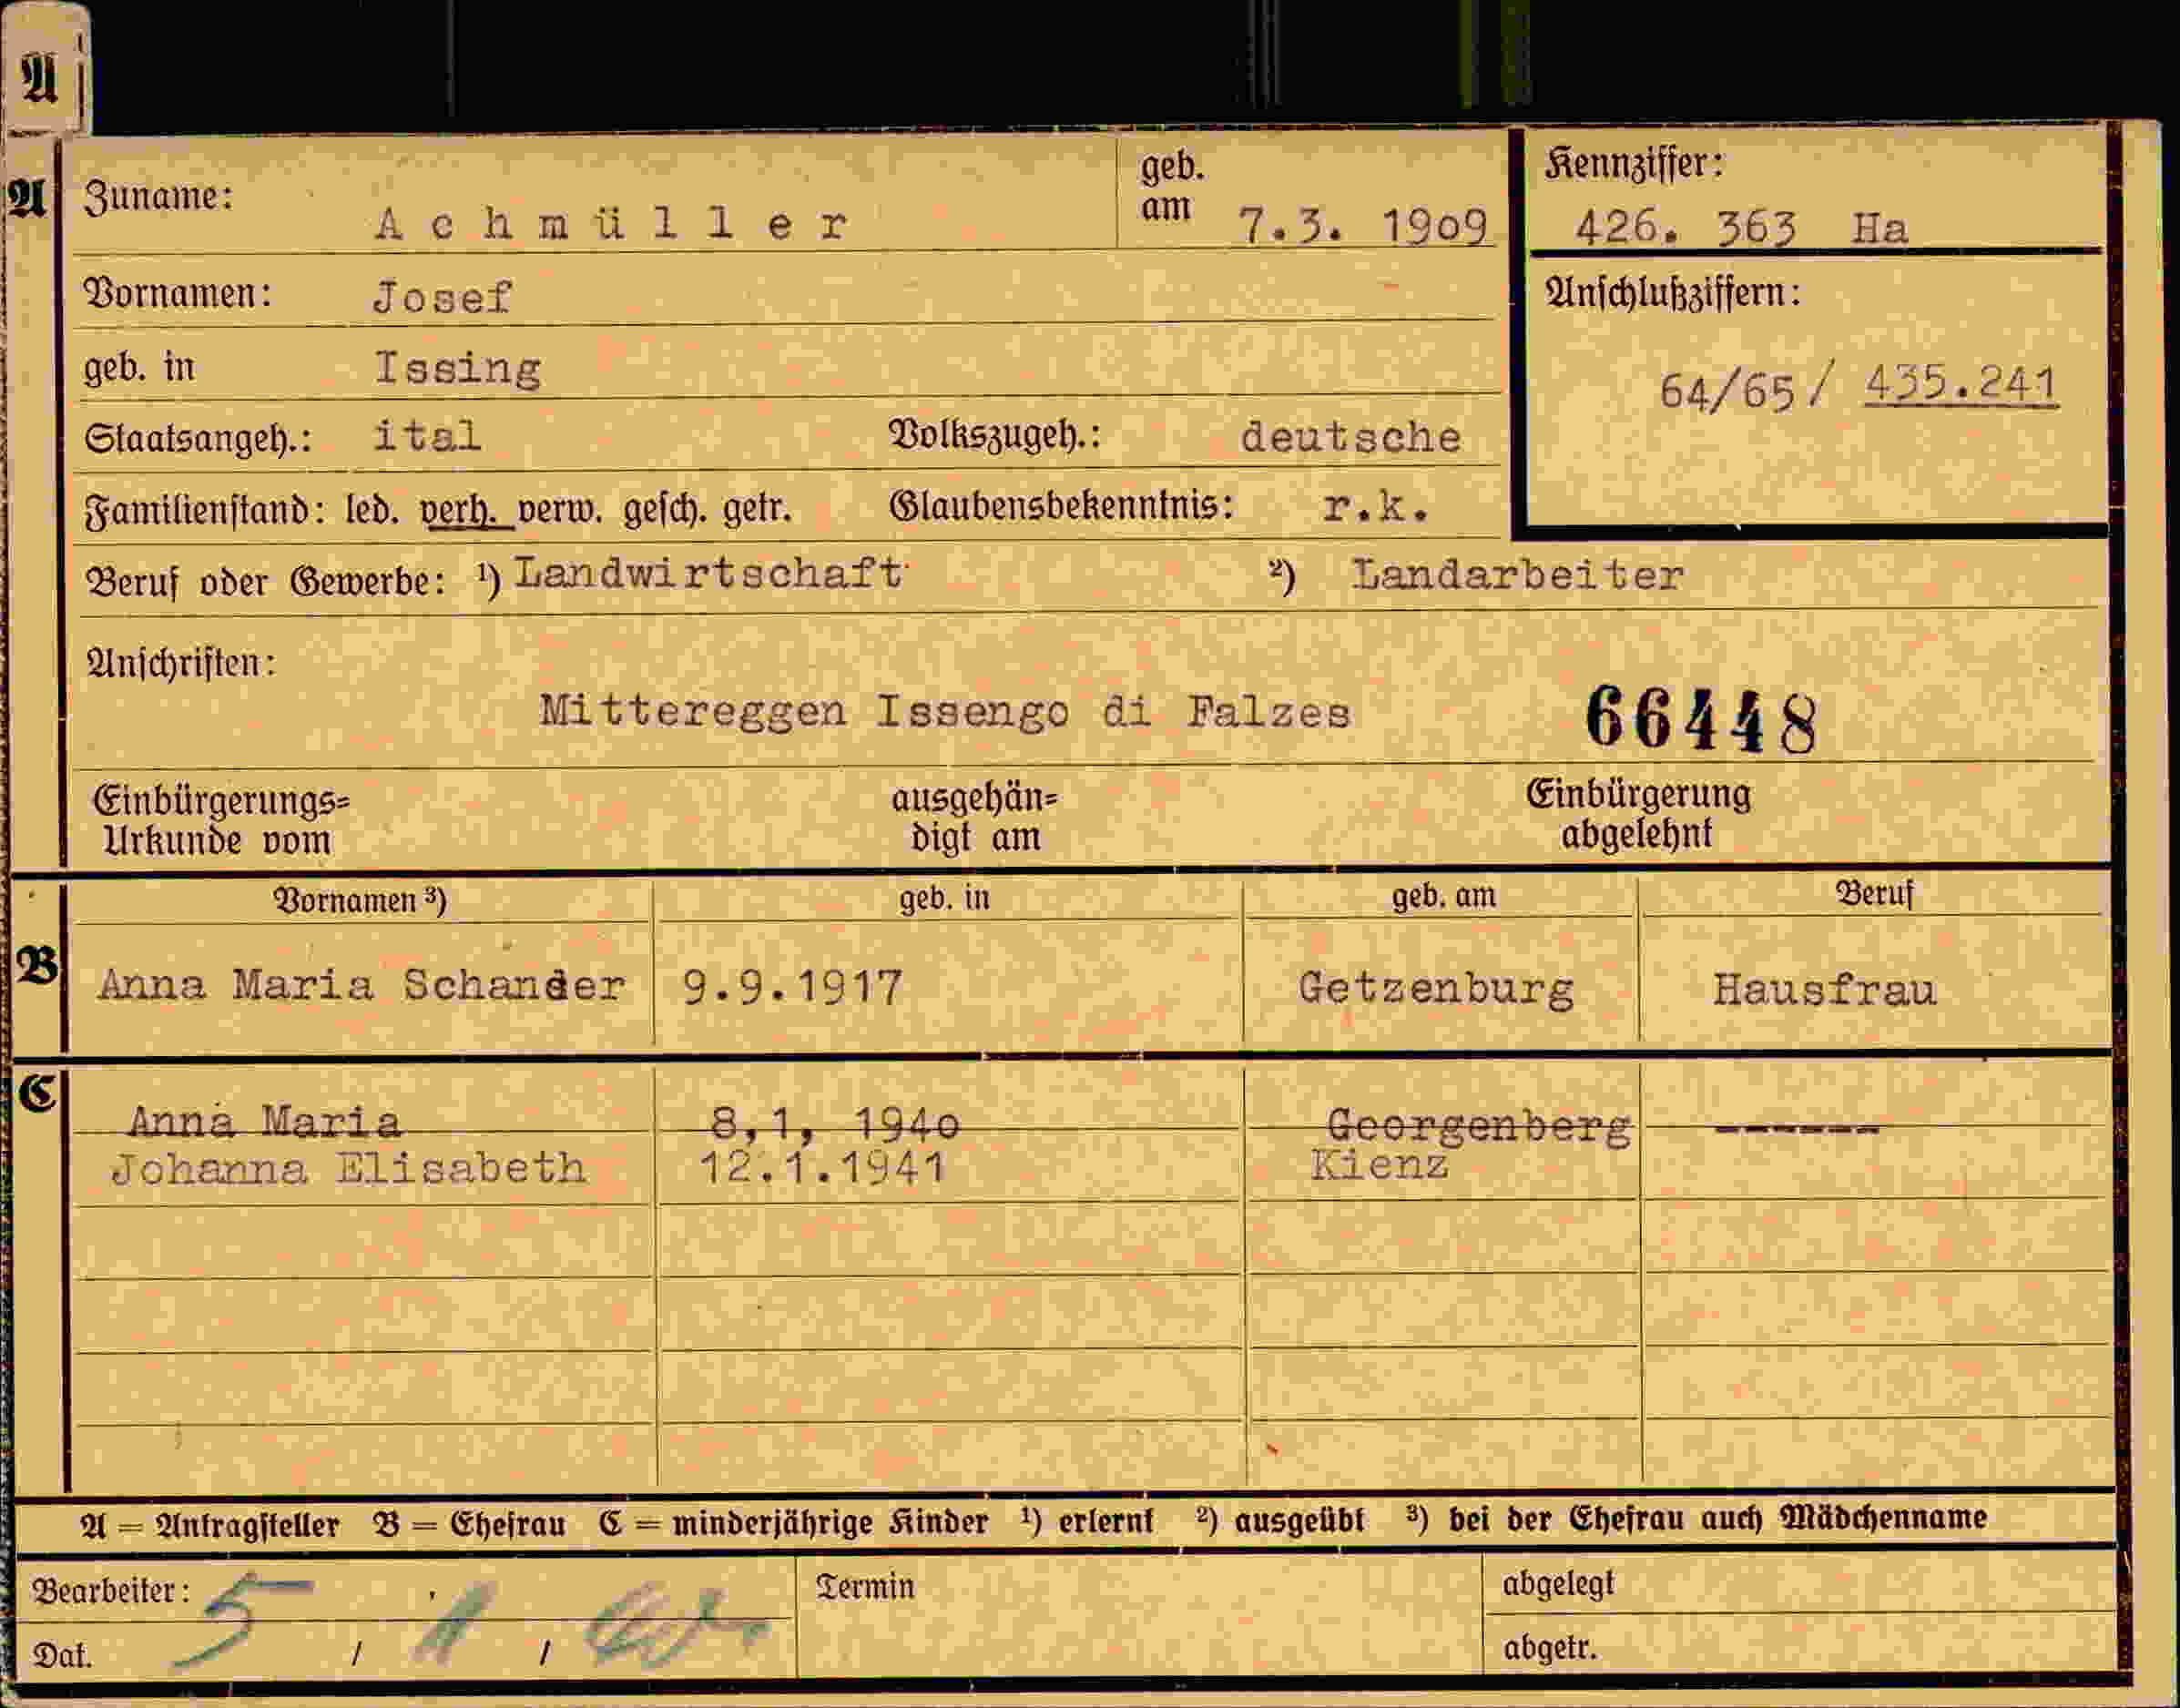 A
A
Zuname: Achmüller geb. am 7.3. 1909 Kennziffer: 426. 363 Ha
Vornamen: Josef Anschlußziffern:
geb. in Issing 64/65/ 435.241
Staatsangeh.: ital Volkszugeh.: deutsche
Familienstand: led. verh. verw. gesch. getr. Glaubensbekenntnis: r.k.
Beruf oder Gewerbe: ¹) Landwirtschaft ²) Landarbeiter
Anschriften:
Mittereggen Issengo di Falzes 66448
Einbürgerungs= ausgehän= Einbürgerung
Urkunde vom digt am abgelehnt
Vornamen ³) geb. in geb. am Beruf
B Anna Maria Schander 9.9.1917 Getzenburg Hausfrau
C
Anna Maria 8,1, 1940 Georgenberg ------
Johanna Elisabeth 12.1.1941 Kienz
A = Antragsteller B = Ehefrau C = minderjährige Kinder ¹) erlernt ²) ausgeübt ³) bei der Ehefrau auch Mädchenname
Bearbeiter: 5 Termin abgelegt
Dat. / / abgetr.